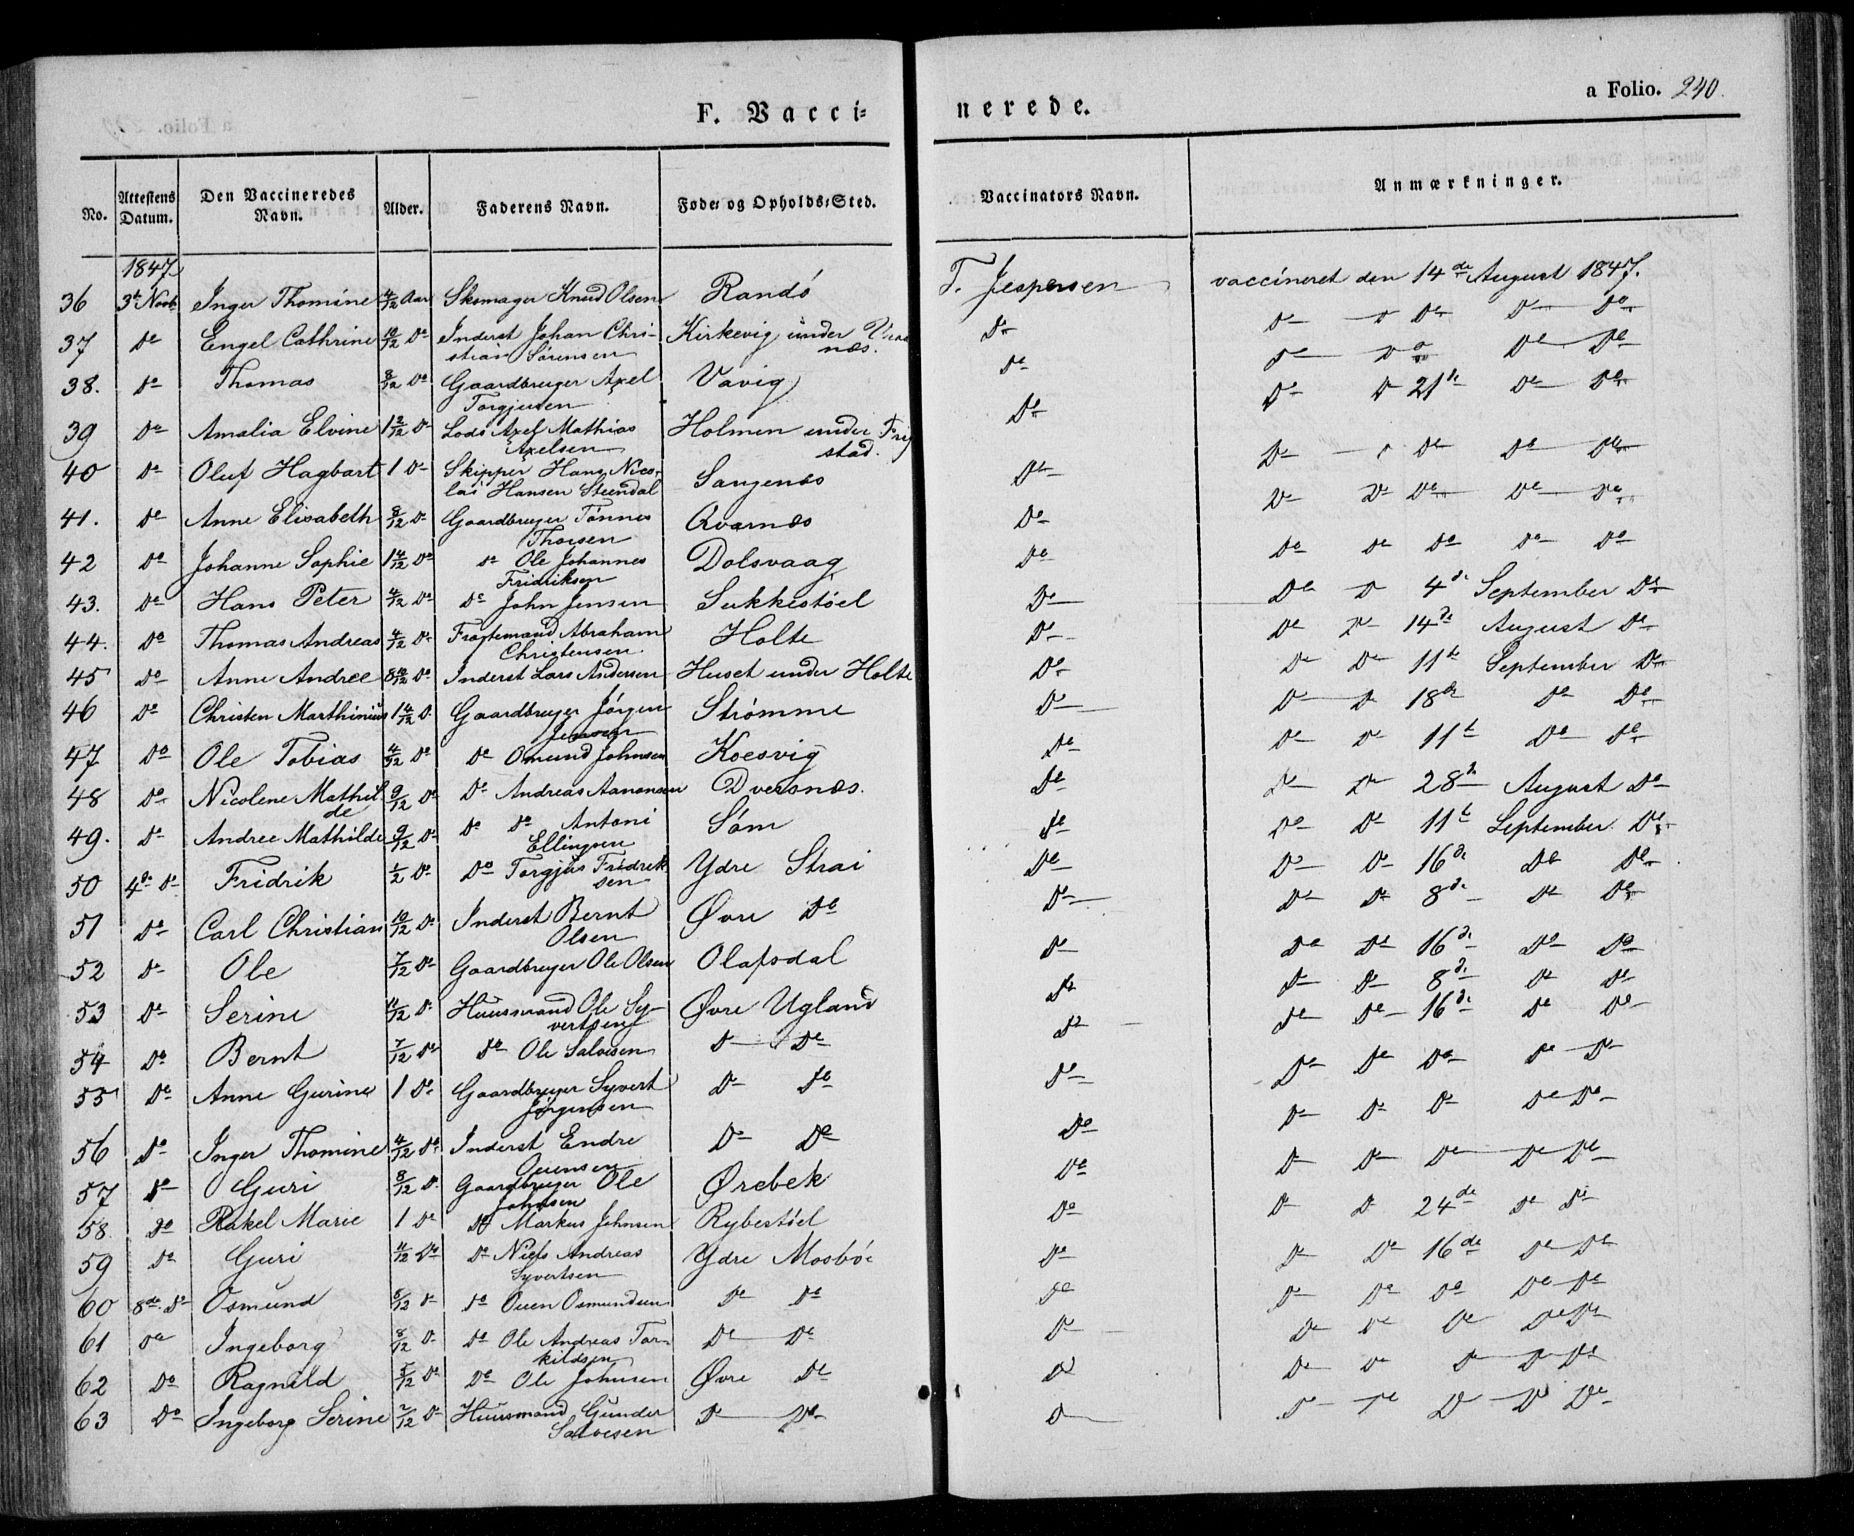 a Folio. 240.
F. Vacci= nerede.
No. Attestens Datum. Den Vaccineredes Navn. Alder. Faderens Navn. Føde= og Opholds=Sted. Vaccinators Navn. Anmærkninger.
1847
36 3de Novb Inger Thomine 4/12 Aar Skomager Knud Olsen Randø T. Jespersen vaccineret den 14de August 1847.
37 Do Engel Cathrine 10/12 Do Inderst Johan Chri- Kirkevig under Do Do Do Do Do Do
stian Sørensen næs.
38. Do Thomas 8/12 Do Gaardbruger Axel Vavig Do Do Do Do Do Do
Torgjusen
39 Do Amalia Elvine 1 2/12 Do Lods Axel Mathias Holmen under Frystad. Do Do D 21de Do Do
Axelsen
40 Do Oluf Hagbart 1 Do Skipper Hans Nico- Sangenæs Do Do Do Do Do
lai Hansen Steendal
41. Do Anne Elisabeth 8/12 Do Gaardbruger Tønnes Qvarnæs Do Do Do Do Do Do
Thorsen
42 Do Johanne Sophie 1 4/12 Do Do Ole Johannes Dolsvaag Do Do Do Do Do Do
Fridriksen
43. Do Hans Peter 4/12 Do Do John Jensen Sukkestøel Do Do D 4de September Do
44. Do Thomas Andreas 4/12 Do Fragtemand Abraham Holte Do Do Do 14de August Do
Christensen.
45 Do Anne Andree 8 10/12 Do Inderst Lars Andersen Huset under Holte Do Do Do 11te September Do
46 Do Christen Marthinius 1 4/12 D. Gaardbruger Jørgen Strømme Do Do D 18de Do Do
Jensen
47 Do Ole Tobias 4/12 Do Do Omund Johnsen Koesvig Do Do Do 11te Do Do
48 Do Nicolene Mathil- 9/12 Do Do Andreas Aanonsen Dversnæs. Do Do Do 28de August Do
de
49. Do Andree Mathilde 9/12 Do Do Do Antoni Søm Do Do Do 11te September Do
Ellingsen
50 4de Do Fridrik 1/2 Do Do Torgjus Fridrik- Ydre Strai Do Do Do 16de Do Do
sen
51 Do Carl Christian 10/12 Do Inderst Bernt Øvre Do Do Do Do 8de Do Do
Olsen
52 Do Ole 7/12 Do Gaardbruger Ole Olsen Olafsdal Do Do Do 16de Do Do
53 Do Serine 11/12 Do Huusmand Ole Sy- Øvre Ugland Do Do Do 8de Do Do
vertsen
54 Do Bernt 7/12 Do Do Ole Salvesen D Do Do Do Do 16de Do Do
55 Do Anne Gurine 1 Do Gaardbruger Syvert Do Do Do Do Do Do Do Do
Jørgensen
56 Do Inger Thomine 4/12 Do Inderst Endre Do Do Do Do Do D Do Do
Ouensen
57 Do Guri 8/12 D. Gaardbruger Ole Ørebek Do D Do Do Do Do
Johnsen
58. Do Rakel Marie 1 Do Do Markus Johnsen Rybestøel Do Do D 24de Do Do
59 Do Guri 4/12 Do Do Niels Andreas Ydre Mosbøe Do Do Do 16de Do Do
Syvertsen
60 8de Do Osmund 5/12 Do Do Ouen Osmundsen Do Do Do Do Do Do Do Do
61 Do Ingeborg 8/12 D. Do Ole Andreas Tor- Do Do Do Do Do Do Do Do
kildsen
62 Do Ragnild 5/12 Do Do Ole Johnsen Øvre Do D Do Do D D Do
63 Do Ingeborg Serine 7/12 Do Huusmand Gunder D Do D D Do D D Do
Salvesen